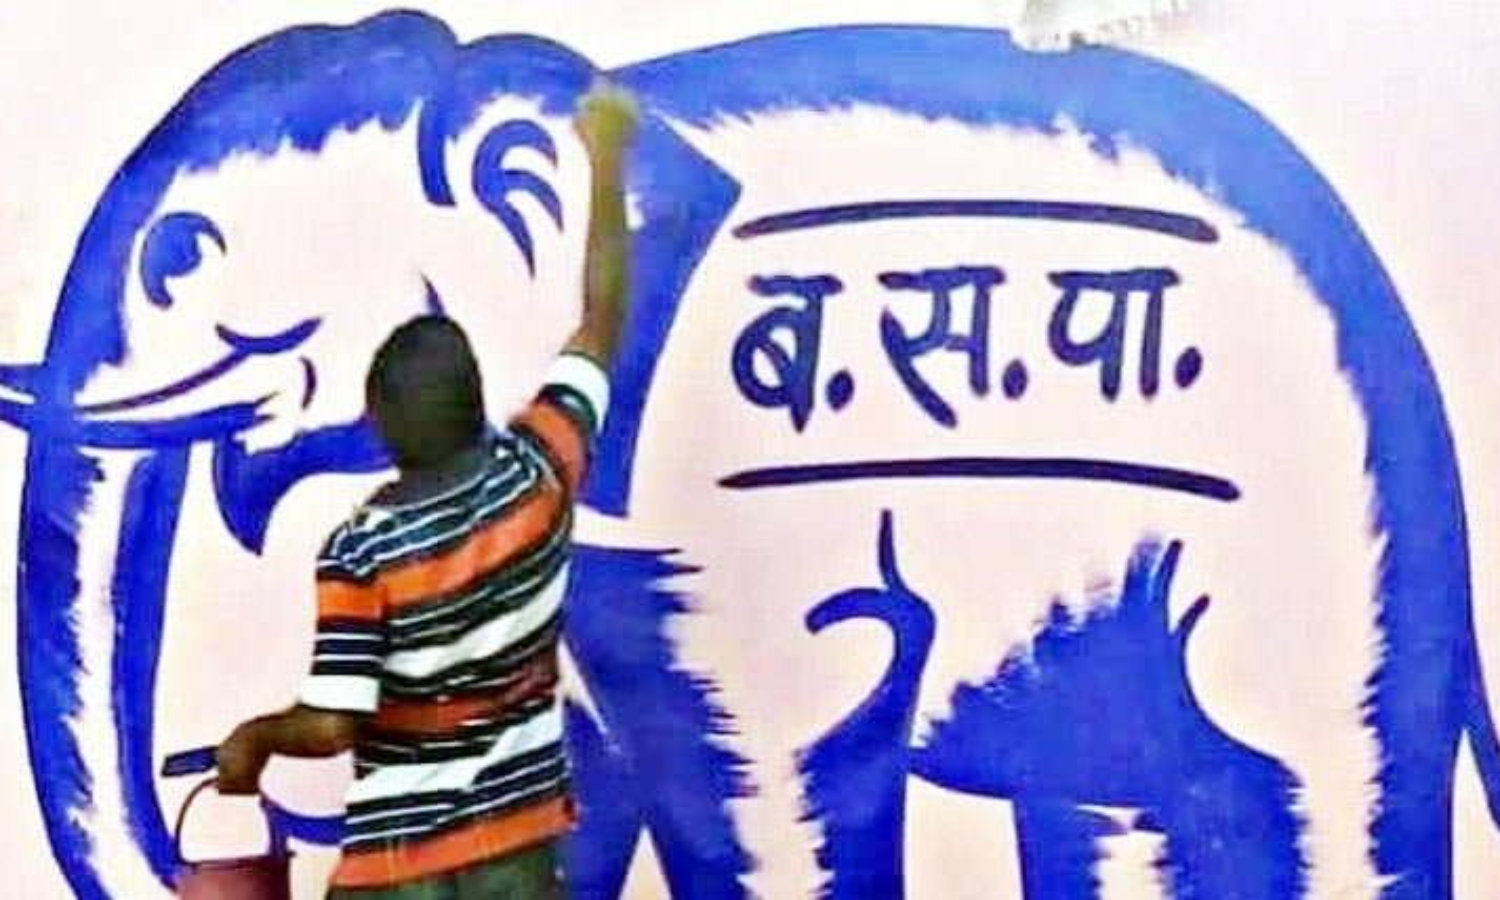 ब.स.पा.